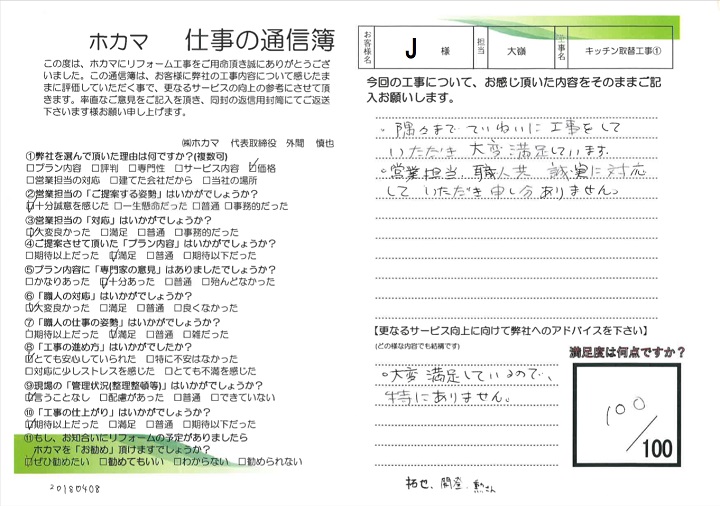 ホカマ 仕事の通信簿
この度は、ホカマにリフォーム工事をご用命頂き誠にありがとうござ
いました。この通信簿は、お客様に弊社の工事内容について感じたまま
まに評価していただく事で、更なるサービスの向上の参考にさせて頂
きます。率直なご意見をご記入を頂き、同封の返信用封筒にてご返送
下さいます様お願い申し上げます。
㈱ホカマ 代表取締役 外間 慎也
①弊社を選んで頂いた理由は何ですか?(複数可)
□プラン内容 □評判 □専門性 □サービス内容 ☑価格
□営業担当の対応 □建てた会社だから □当社の場所
②営業担当の「ご提案する姿勢」はいかがでしょうか?
☑十分誠意を感じた □一生懸命だった □普通 □事務的だった
③営業担当の「対応」はいかがでしょうか?
☑大変良かった □満足 □普通 □事務的だった
④ご提案させて頂いた「プラン内容」はいかがでしょうか?
□期待以上だった ☑満足 □普通 □期待以下だった
⑤プラン内容に「専門家の意見」はありましたでしょうか?
□かなりあった ☑十分あった □普通 □殆んどなかった
⑥「職人の対応」はいかがでしょうか?
☑大変良かった □満足 □普通 □良くなかった
⑦「職人の仕事の姿勢」はいかがでしょうか?
□期待以上だった ☑満足 □普通 □雑だった
⑧「工事の進め方」はいかがでしたか?
☑とても安心していられた □特に不安はなかった
□対応に少しストレスを感じた □とても不満を感じた
⑨現場の「管理状況(整理整頓等)」はいかがでしょうか?
☑言うことなし □配慮があった □普通 □できていない
⑩「工事の仕上がり」はいかがでしょうか?
☑期待以上だった □満足 □普通 □期待以下だった
⑪もし、お知合いにリフォームの予定がありましたら
ホカマを「お勧め」頂けますでしょうか?
☑ぜひ勧めたい □勧めてもいい □わからない □勧められない
20180408
お客様名 J 様 担当 大嶺 工事名 キッチン取替工事①
今回の工事について、お感じ頂いた内容をそのままご記
入お願いします。
・隅々まで ていねいに 工事をして
いただき 大変 満足しています。
・営業担当、職人共 誠実に対応
して いただき 申し分 ありません。
【更なるサービス向上に向けて弊社へのアドバイスを下さい】
(どの様な内容でも結構です)
・大変 満足しているので、
特にありません。
満足度は何点ですか?
100
/100